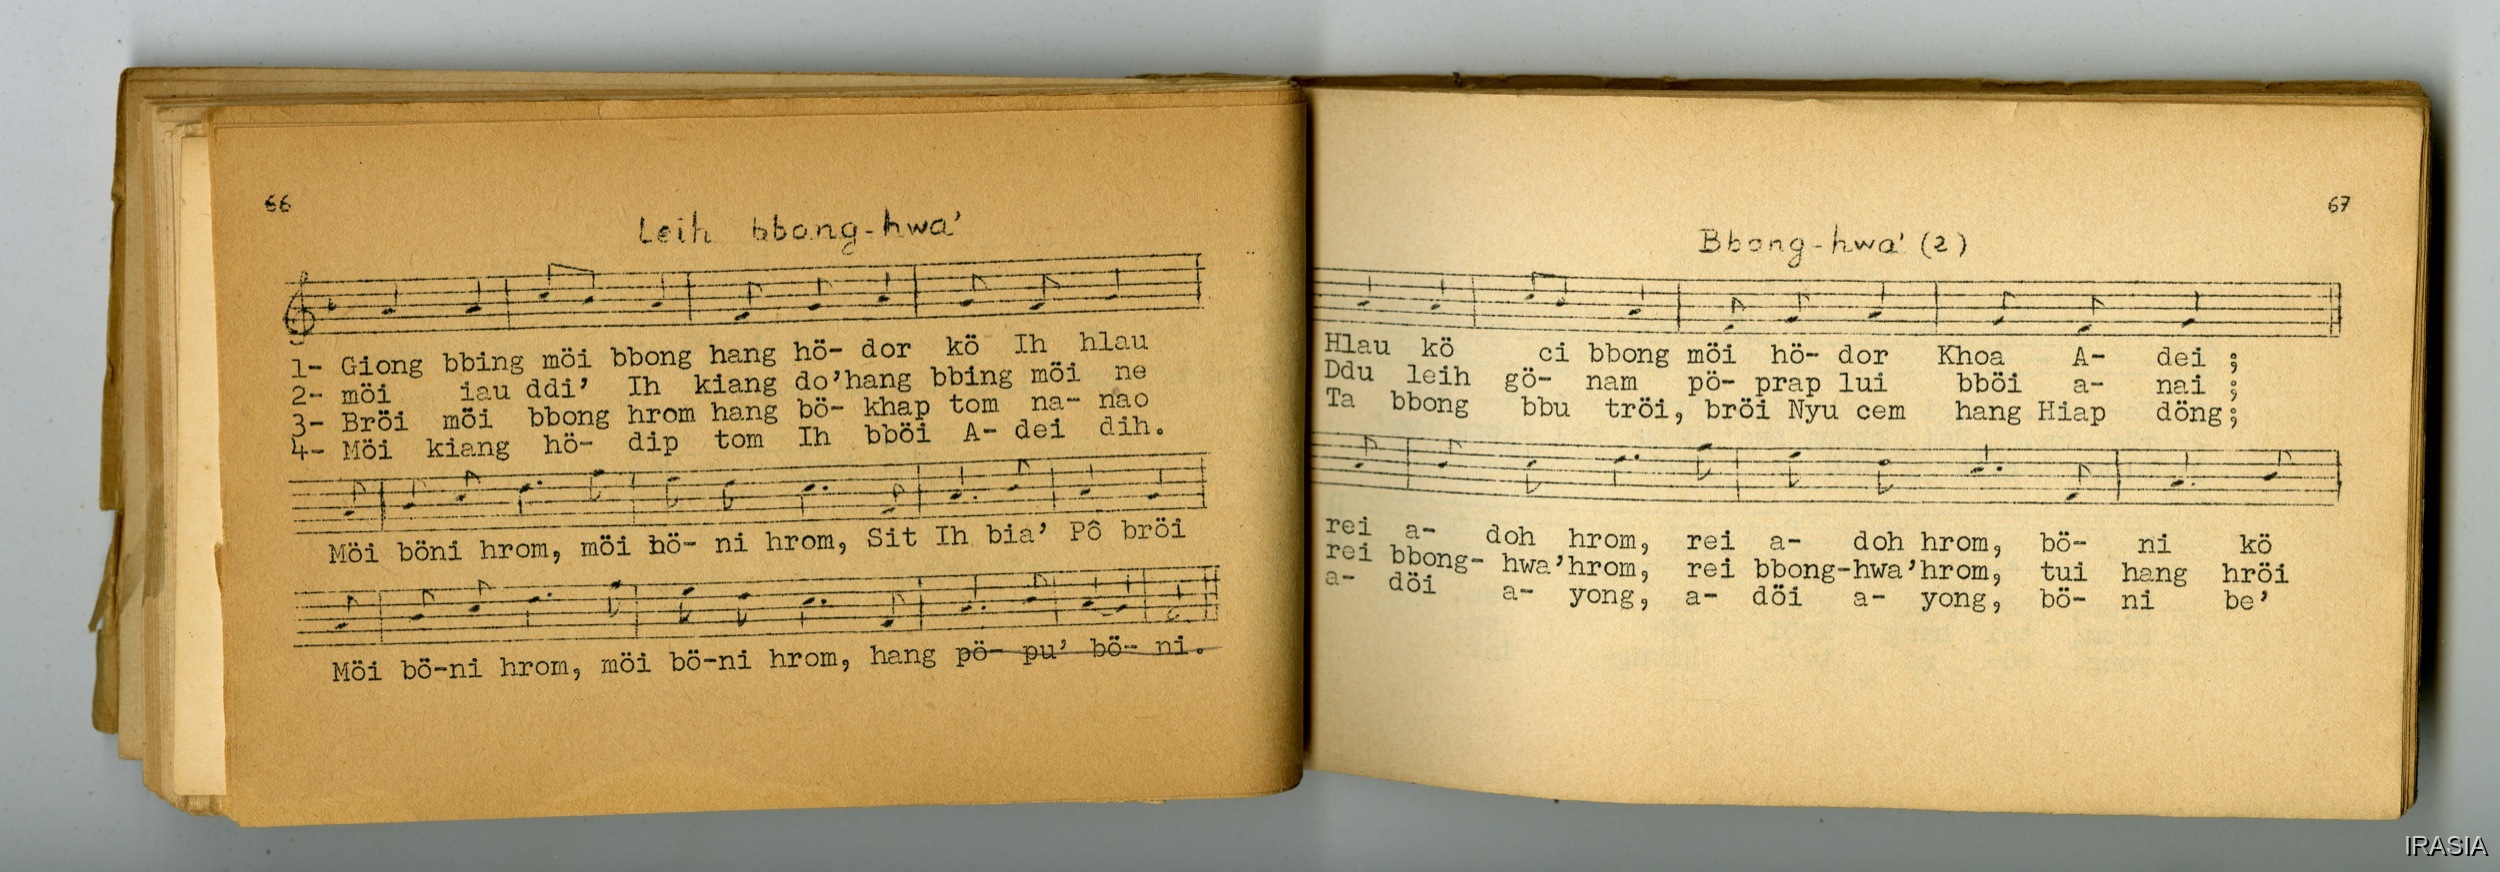 66
Leih bbong-hwa'
1- Giong bbing möi bbong hang hö- dor kö Ih hlau
2- möi iau ddi' Ih kiang do'hang bbing möi ne
3- Bröi möi bbong hrom hang bö- khap tom na- nao
4- Möi kiang hö- dip tom Ih bböi A- dei dih.
Möi böni hrom, möi bö- ni hrom, Sit Ih bia' Pô bröi
Möi bö-ni hrom, möi bö-ni hrom, hang pö- pu' bö- ni.
67
Bbong-hwa' (2)
Hlau kö ci bbong möi hö- dor Khoa A- dei ;
Ddu leih gö- nam pö- prap lui bböi a- nai ;
Ta bbong bbu tröi, bröi Nyu cem hang Hiap döng;
rei a- doh hrom, rei a- doh hrom, bö- ni kö
rei bbong- hwa'hrom, rei bbong-hwa'hrom, tui hang hröi
a- döi a- yong, a- döi a- yong, bö- ni be'
IRASIA